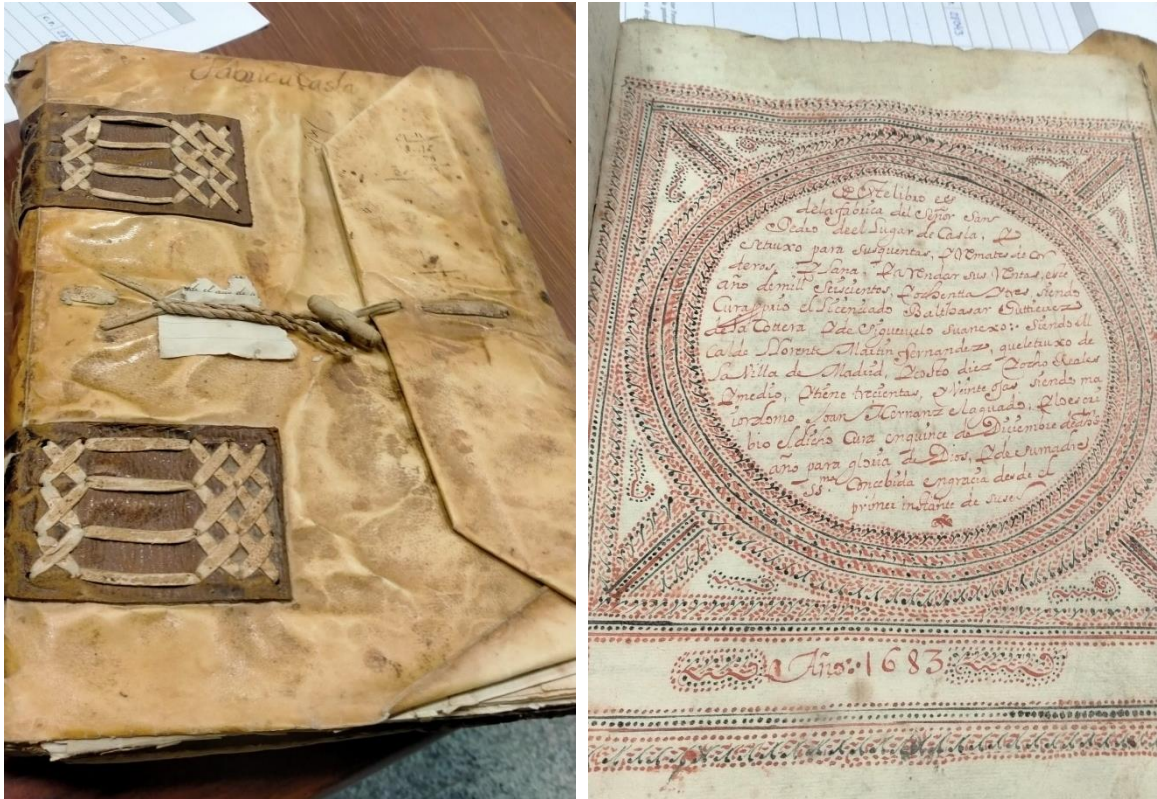 Fabrica Casla
Este libro es
de la fabrica del Señor San
Pedro de el Lugar de Casla, Y
se tuxo para sus quentas, Y Remates de Cor
deros, Y Lana, Y arrendar sus Rentas, este
año de mill Seiscientos, Y ochenta Y tres, siendo
Cura Prio el licenciado Balthasar Guttierrez
de la Cottera, Y de Siguevelo su anexo: Siendo Al
calde Llorente Martin Fernandez, que le tuxo de
la Villa de Madrid, Y costo diez Y ocho Reales
Y medio, Y tiene trecientas, Y Veinte ojas siendo ma
iordomo Joan Hernanz el aguado, Y lo escri
bio el dicho Cura en quince de Diciembre de dho
año para gloria de Dios, Y de su madre
SS.ma Concebida en gracia desde el
primer instante de su ser
Año: 1683